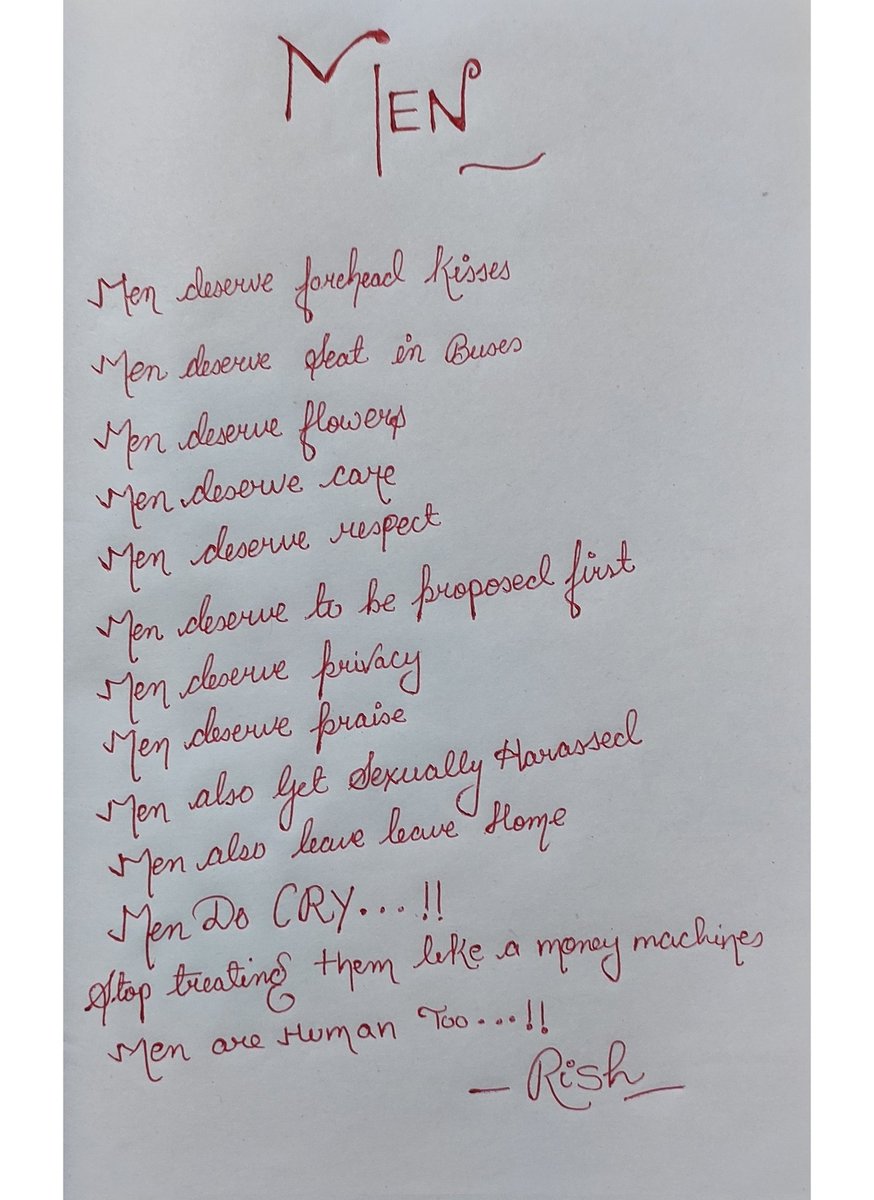 MEN
Men deserve forehead kisses
Men deserve Seat in Buses
Men deserve flowers
Men deserve care
Men deserve respect
Men deserve to be proposed first
Men deserve privacy
Men deserve praise
Men also Get Sexually Harassed
Men also leave leave Home
Men Do CRY...!!
Stop treating them like a money machines
Men are Human Too...!!
— Rish —